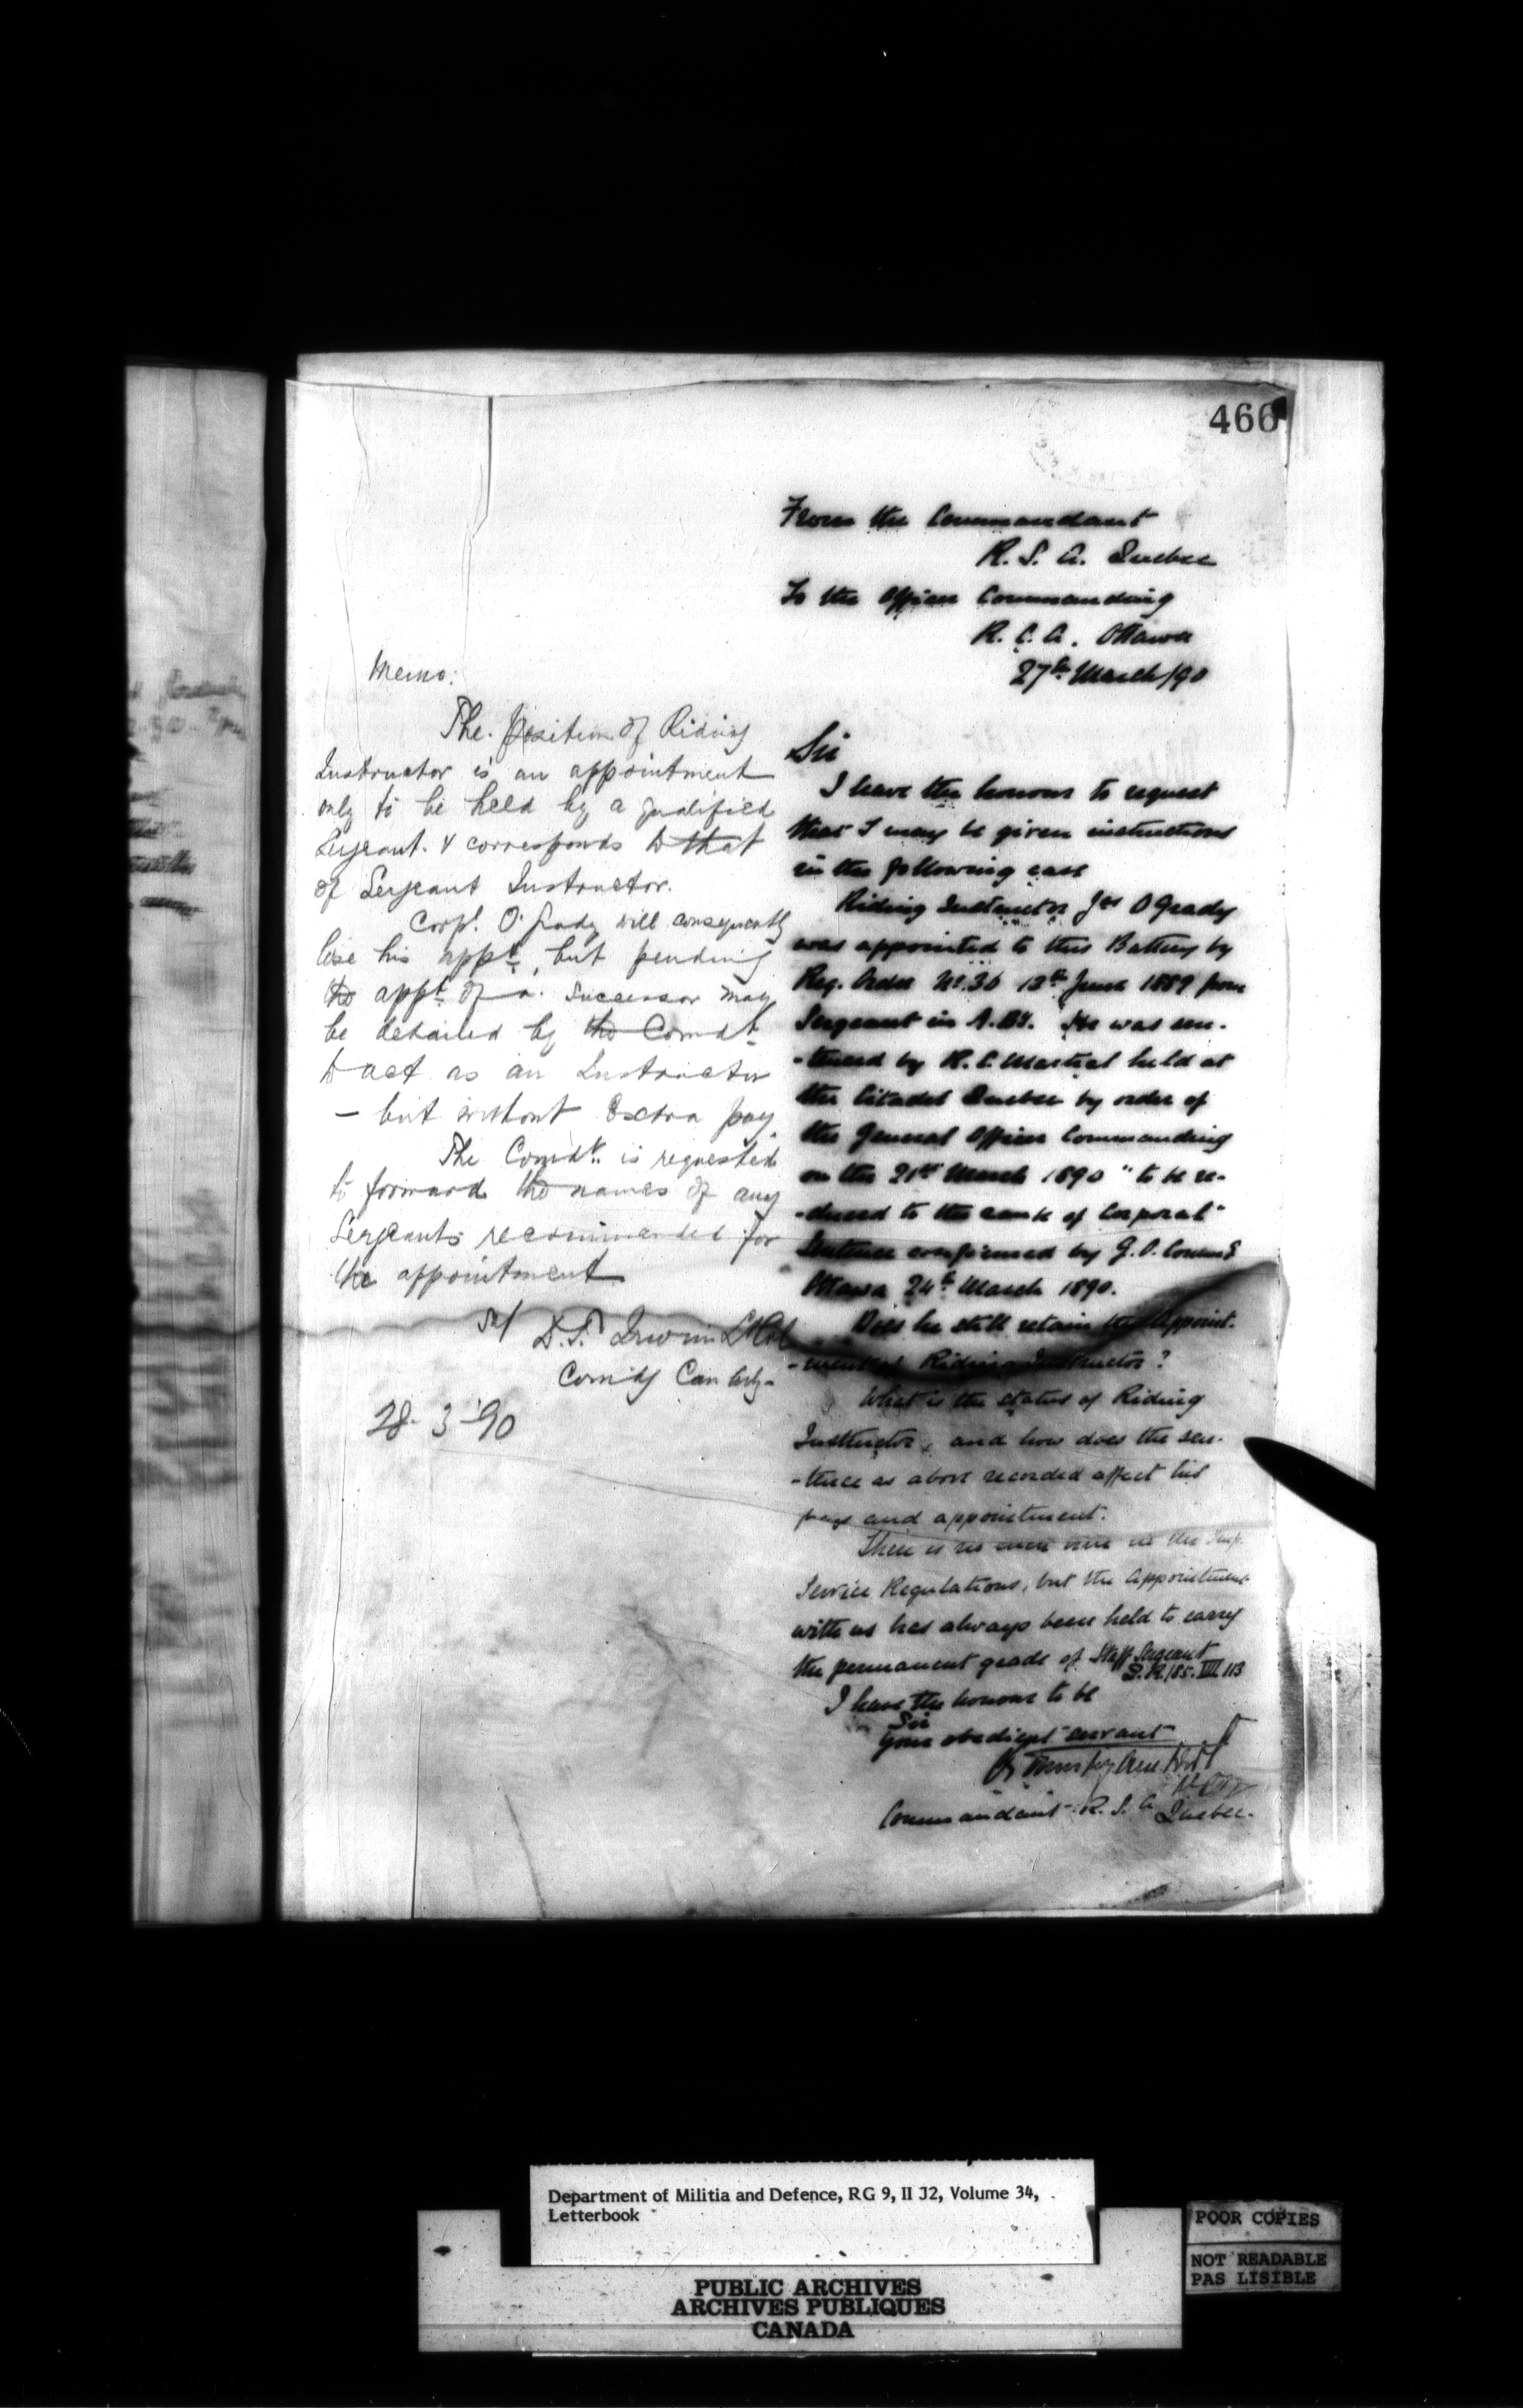 466
From the Commandant
R. S. A. Quebec
To the Officer Commanding
R. C. A. Ottawa
27th March/90
Sir
I have the honour to request
that I may be given instructions
in the following case
Riding Instructor Jas O'Grady
was appointed to this Battery by
Reg. Order No. 36 13th June 1889 from
Sergeant in A. By. He was sen-
-tenced by R. C. Martial held at
the Citadel Quebec by order of
the General Officer Commanding
on the 21st March 1890 "to be re-
-duced to the rank of Corporal"
Sentence confirmed by G. O. Comm
Ottawa 24th March 1890.
Does he still retain the Appoint-
-ment as Riding Instructor?
What is the status of Riding
Instructor, and how does the sen-
-tence as above recorded affect his
pay and appointment.
There is no such in the Imp.
Service Regulations, but the Appointment
with us has always been held to carry
the permanent grade of Staff Sergeant
I have the honour to be
Sir
Your obedient servant
Commandant R. S. A. Quebec.
Memo:
The Position of Riding
Instructor is an appointment
only to be held by a qualified
Sergeant. & corresponds to that
of Sergeant Instructor.
Corpl. O'Grady will consequently
lose his appt., but pending
the appt. of a successor may
be detailed by the Comdt.
to act as an Instructor
- but without Extra pay.
The Comdt. is requested
to forward the names of any
Sergeants recommended for
the appointment
D.T. Irwin Lt Col
Comdg Can Arty-
28-3-90
Department of Militia and Defence, RG 9, II J2, Volume 34,
Letterbook
PUBLIC ARCHIVES
ARCHIVES PUBLIQUES
CANADA
POOR COPIES
NOT READABLE
PAS LISIBLE